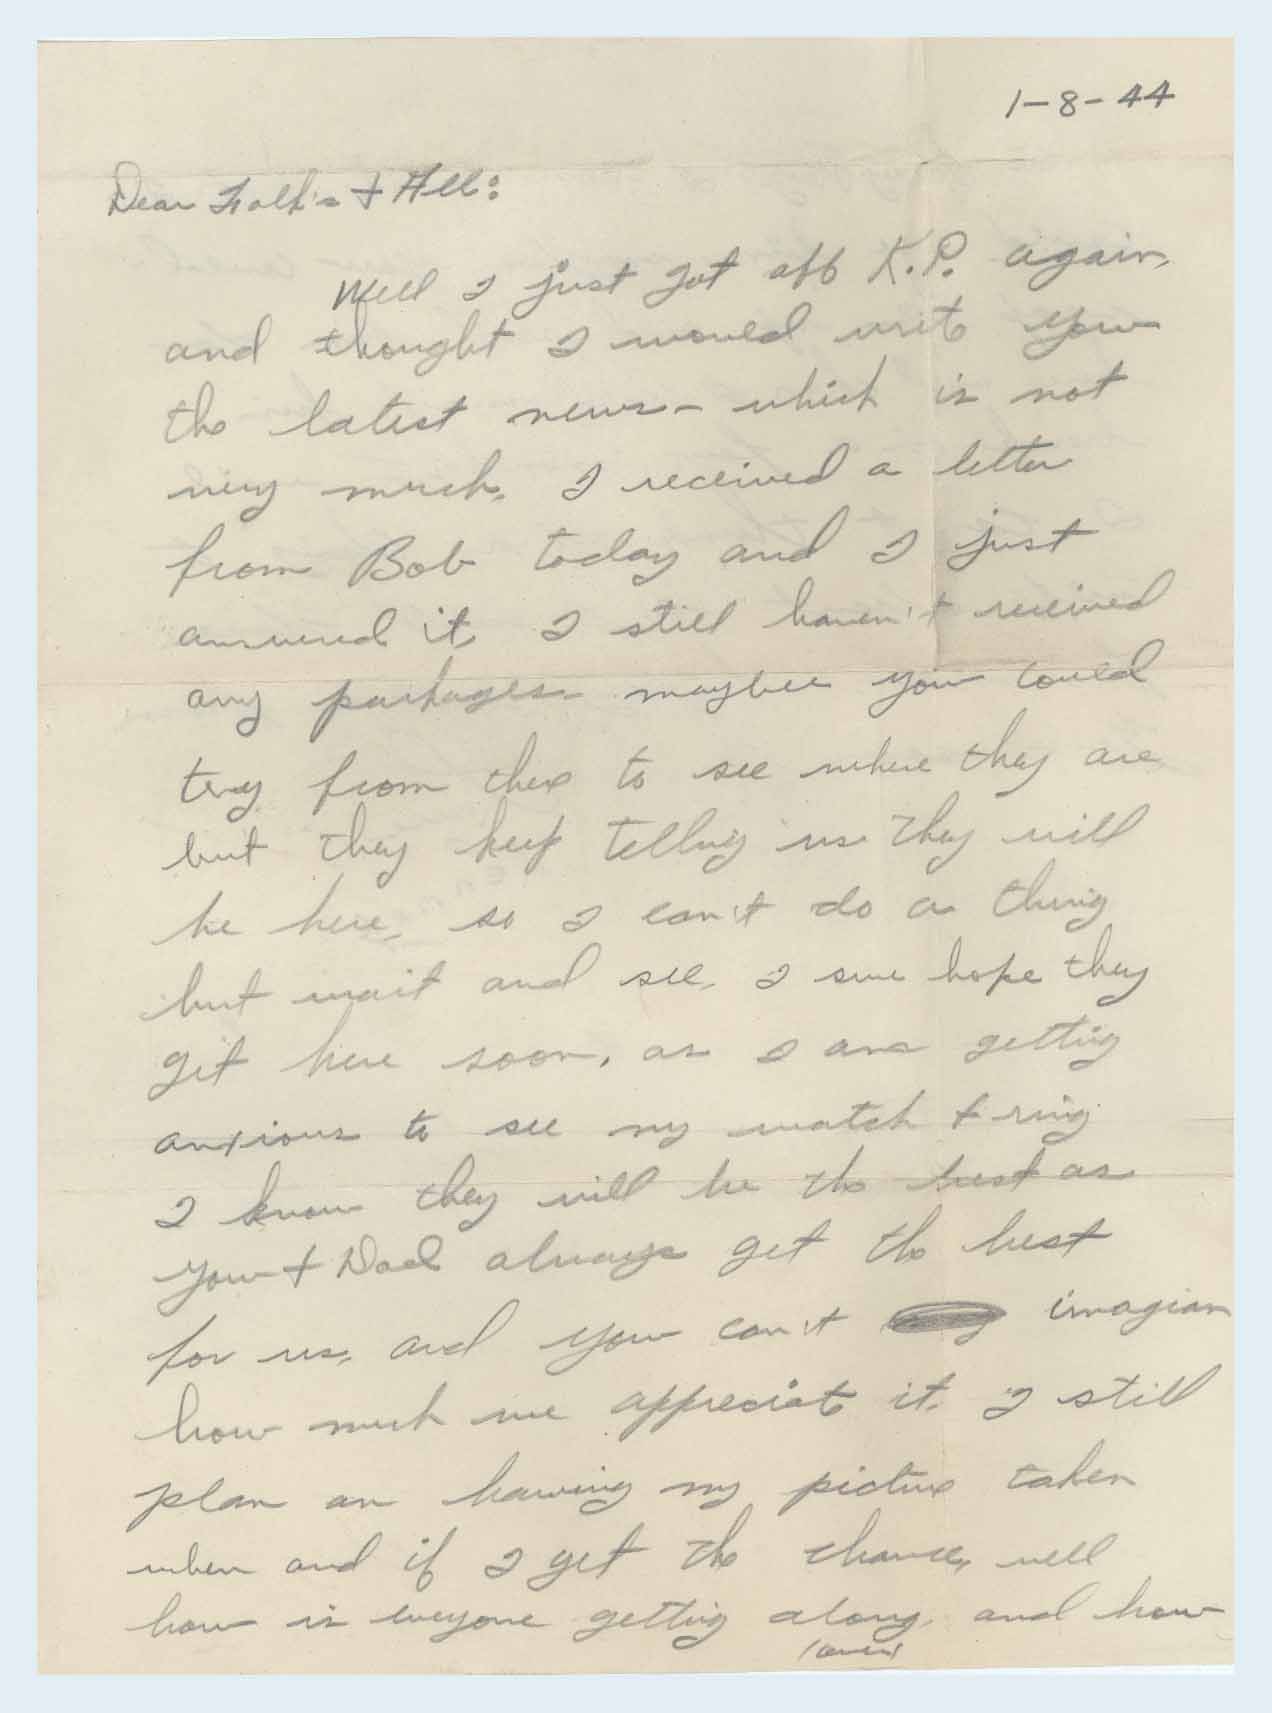 1-8-44
Dear Folk's + All:
Well I just got off K.P. again,
and thought I would write you
the latest news - which is not
very much. I received a letter
from Bob today and I just
answered it. I still haven't received
any packages - maybee you could
try from there to see where they are
but they keep telling us they will
be here, so I can't do a thing
but wait and see. I sure hope they
get here soon, as I am getting
anxious to see my watch + ring
I know they will be the best as
you + Dad always get the best
for us, and you can't imagian
how much we appreciate it. I still
plan on having my picture taken
when and if I get the chance, well
how is everyone getting along, and how
(over)